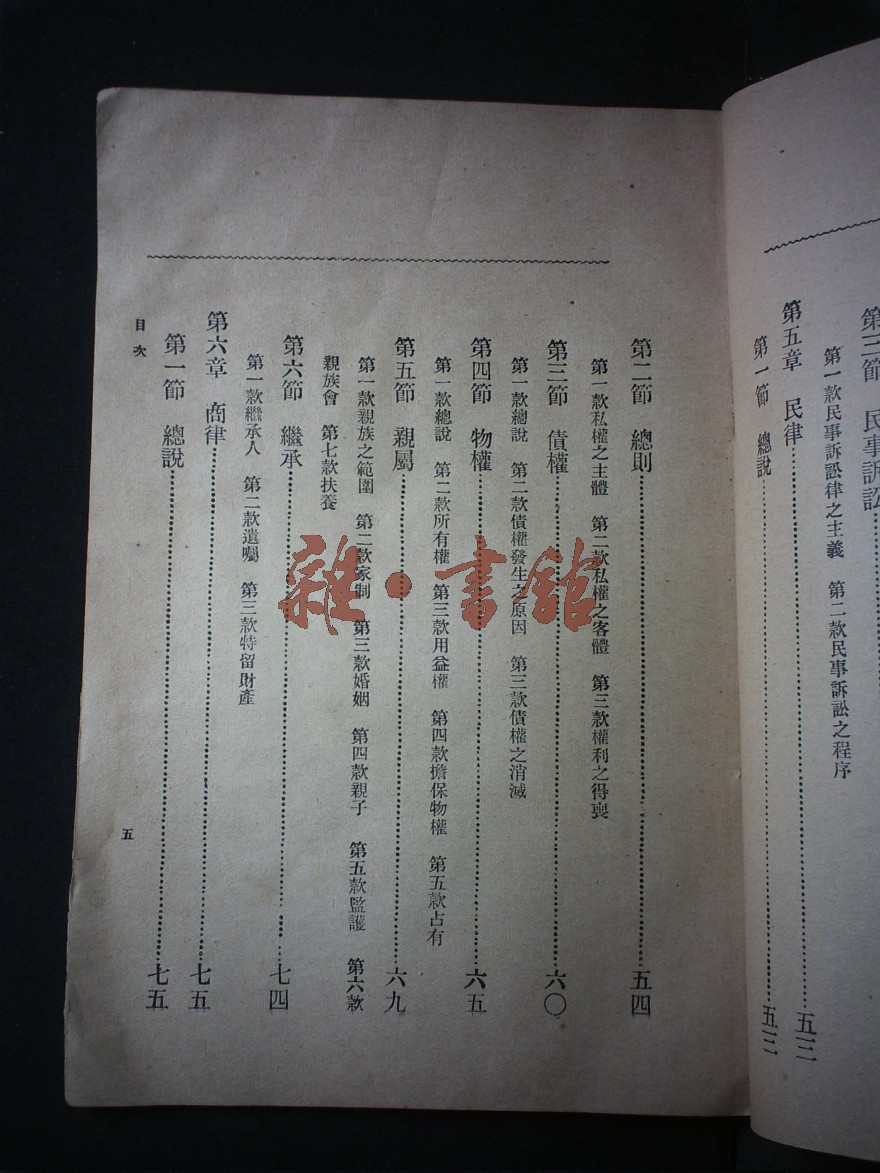 第三節　民事訴訟
第一款民事訴訟律之主義　第二款民事訴訟之程序
第五章　民律……五三
第一節　總說……五三
第二節　總則……五四
第一款私權之主體　第二款私權之客體　第三款權利之得喪
第三節　債權……六〇
第一款總說　第二款債權發生之原因　第三款債權之消滅
第四節　物權……六五
第一款總說　第二款所有權　第三款用益權　第四款擔保物權　第五款占有
第五節　親屬……六九
第一款親族之範圍　第二款家制　第三款婚姻　第四款親子　第五款監護　第六款
親族會　第七款扶養
第六節　繼承……七四
第一款繼承人　第二款遺囑　第三款特留財產
第六章　商律……七五
第一節　總說……七五
目次
五
雜·書館